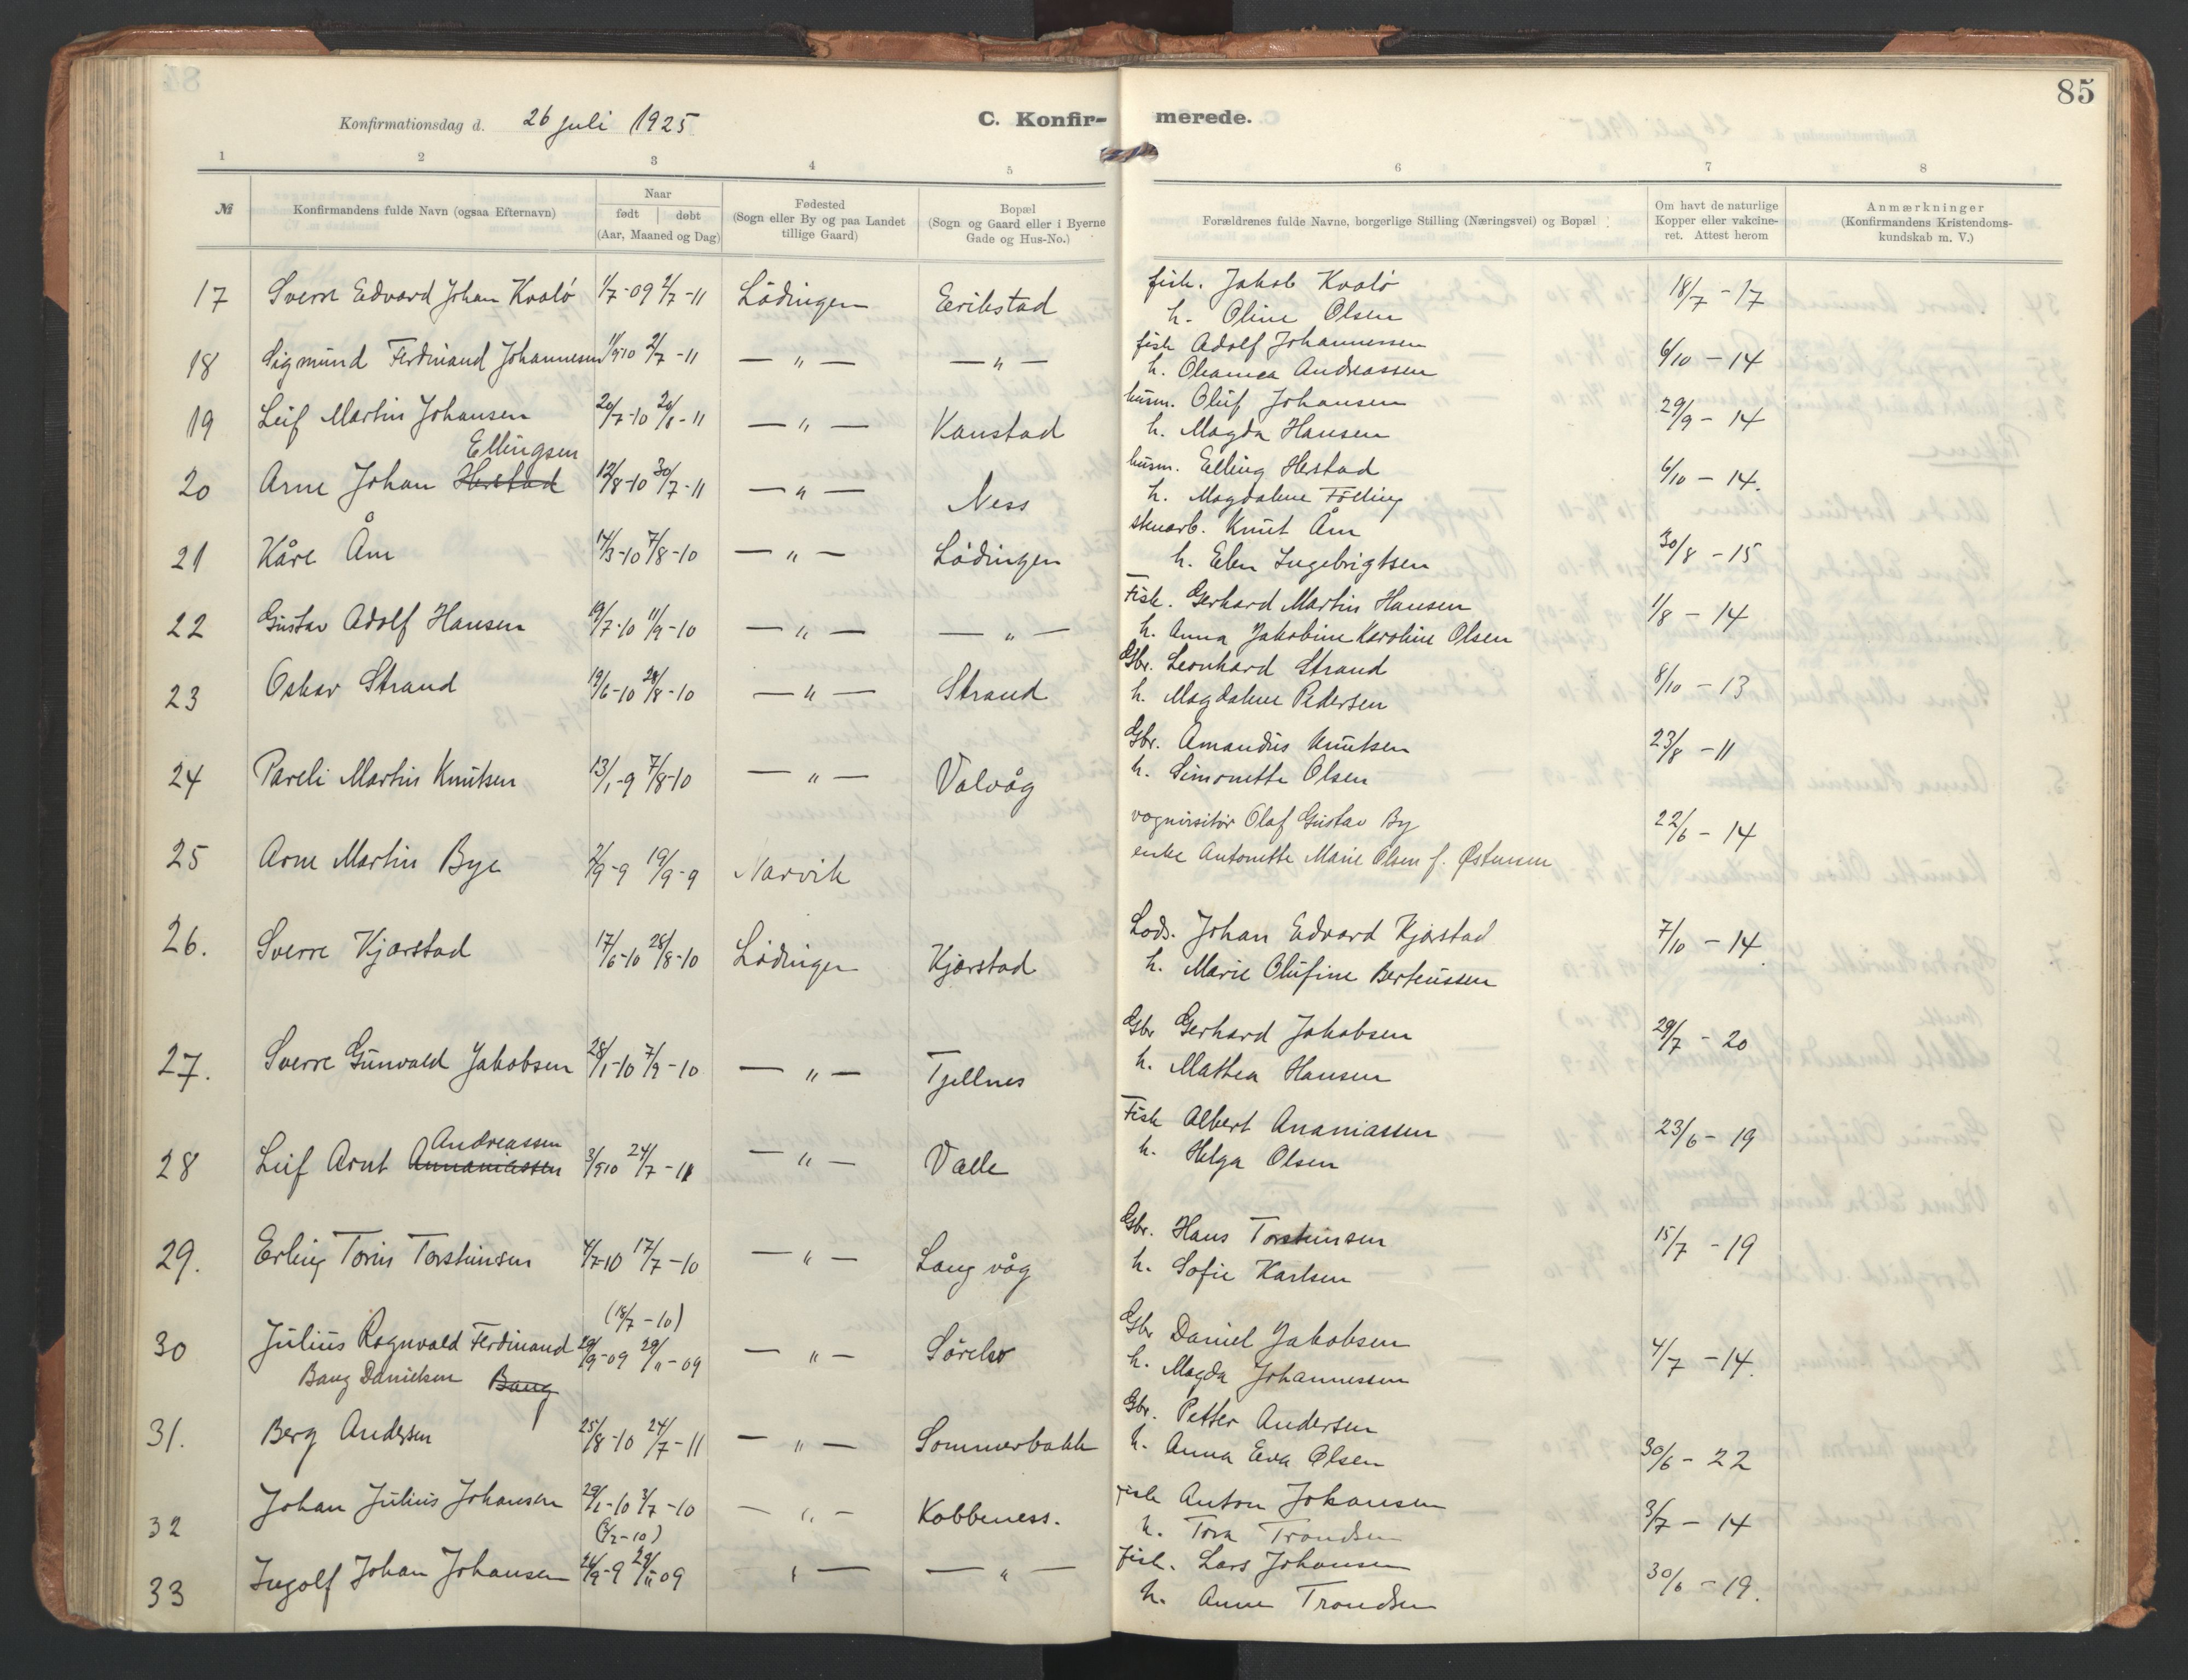 85
Konfirmationsdag d. 26 juli 1925
C. Konfir- merede.
1 2 3 4 5 6 7 8
№
Konfirmandens fulde Navn (ogsaa Efternavn)
Naar
født | døbt
(Aar, Maaned og Dag)
Fødested
(Sogn eller By og paa Landet
tillige Gaard)
Bopæl
(Sogn og Gaard eller i Byerne
Gade og Hus-No.)
Forældrenes fulde Navne, borgerlige Stilling (Næringsvei) og Bopæl
Om havt de naturlige
Kopper eller vakcine-
ret. Attest herom
Anmærkninger
(Konfirmandens Kristendoms-
kundskab m. V.)
17 Sverre Edvard Johan Kvalö 1/7-09 2/7-11 Lödingen Eerikstad fisk. Jakob Kvalö 18/7-17
h. Oline Olsen
18 Sigmund Ferdinand Johannesen 2/7-11 — " — — " — fisk Adolf Johannessen 6/10-14
h. Andreassen
19 Leif Martin Johansen 20/7-10 20/8-11 — " — Kanstad husm. Oluf Johansen 29/9-14
h. Magda Hansen
Ellingsen
20 Arne Johan Herstad 12/8-10 30/7-11 — " — Ness husm. Elling Hestad 6/10-14.
h. Magdalene
21 Kåre Åm 14/3-10 7/8-10 — " — Lödingen stenarb. Knut Åm 30/8-15
h. Elen Ingebrigtsen
22 Gustav Adolf Hansen 19/7-10 11/9-10 — " — — " — Fisk. Gerhard Martin Hansen 1/8-14
h. Anna Jakobine Karoline Olsen
23 Oskar Strand 19/6-10 28/8-10 — " — Strand Gbr. Leonhard Strand 8/10-13
h. Magdalene Pedersen
24 Pareli Martin Knutsen 13/1-9 7/8-10 — " — Valvåg Gbr. Amandus Knutsen 23/8-11
h. Simonette Olsen
25 Arne Martin Bye 2/9-9 19/9-9 Narvik vognvisitör Olaf Gustav By 22/6-14
enke Antonette Marie Olsen f. Østensen
26. Sverre Kjærstad 17/6-10 28/8-10 Lödingen Kjærstad Lods. Johan Edvard Kjærstad 7/10-14.
h. Marie Olufine Berteussen
27. Sverre Gunvald Jakobsen 28/1-10 7/9-10 — " — Tjellnes Gbr Gerhard Jakobsen 29/7-20
h. Mathea Hansen
Andreassen
28 Leif Arnt Annaniassen 3/9 10 24/7-11 — " — Valle Fisk Albert Ananiassen 23/6-19
h. Helga Olsen
29. Erling Torin Torsteinsen 4/7-10 17/7-10 — " — Langvåg Gbr. Hans Torsteinsen 15/7-19
h. Sofie Karlsen
(18/7-10)
30 Julius Ragnvald Ferdinand 29/9-09 29/11-09 — " — Gbr Daniel Jakobsen 4/7-14.
Bang Danielsen Bang h. Magda Johannessen
31. Berg Andersen 25/8-10 24/7-11 — " — Sommerbakk Gbr. Petter Andersen 30/6-22
h. Anna Eva Olsen
32 Johan Julius Johansen 29/1-10 3/7-10 — " — Kobbeness. fisk Anton Johansen 3/7-14
h. Tora Trondsen
33 Ingolf Johan Johansen 29/11 09 — " — — " — fisk. Lars Johansen 30/6-19.
h. Anne Trondsen